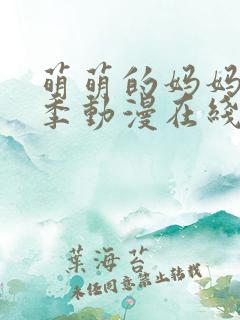 萌萌的妈妈
季動漫在綫
葉海苔
未经同意禁止转载